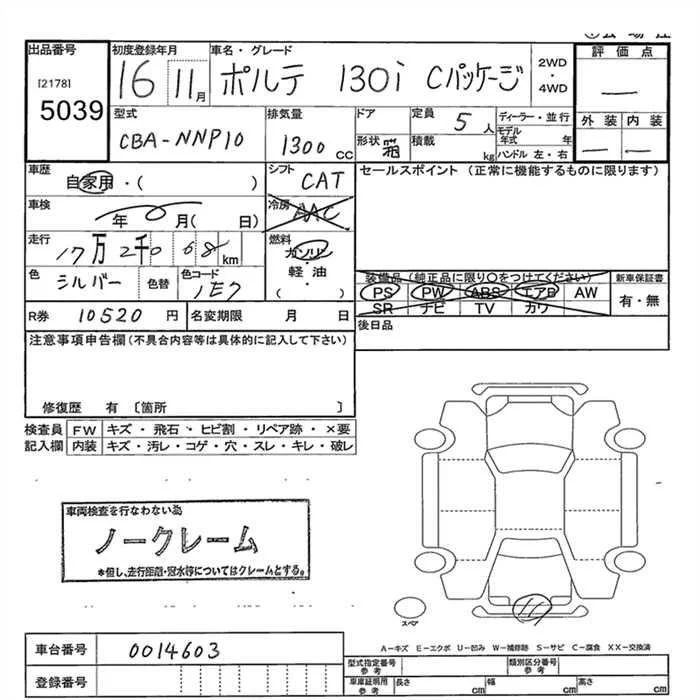 出品番号
[2178]
5039
初度登録年月
16 11月
車名・グレード
ポルテ 130i Cパッケージ
2WD
・
4WD
評価点
—
外装 内装
— —
型式
CBA-NNP10
排気量
1300 cc
ドア
形状 箱
定員 5 人
積載 kg
ディーラー・並行
モデル年式 年
ハンドル 左・右
車歴
自家用・( )
シフト
CAT
セールスポイント (正常に機能するものに限ります)
車検
年 月( 日)
冷房
AAC
走行
17万 2千 0 6 8 km
燃料
ガソリン
軽・油
( )
色
シルバー
色替
色コード
1E7
装備品 (純正品に限り○をつけてください)
PS PW ABS エアB AW
SR ナビ TV カワ
新車保証書
有・無
R券 10520 円
名変期限 月 日
後日品
注意事項申告欄(不具合内容等は具体的に記入して下さい)
修復歴 有 〔箇所 〕
検査員記入欄
FW キズ・飛石・ヒビ割・リペア跡・×要
内装 キズ・汚レ・コゲ・穴・スレ・キレ・破レ
車両検査を行なわない為
ノークレーム
*但し、走行距離・冠水等についてはクレームとする。
スペア
A−キズ E−エクボ U−凹み W−補修跡 S−サビ C−腐食 XX−交換済
車台番号 0014603
登録番号
型式指定番号 参考
類別区分番号 参考
車庫証明用 参考
長さ cm 幅 cm 高さ cm